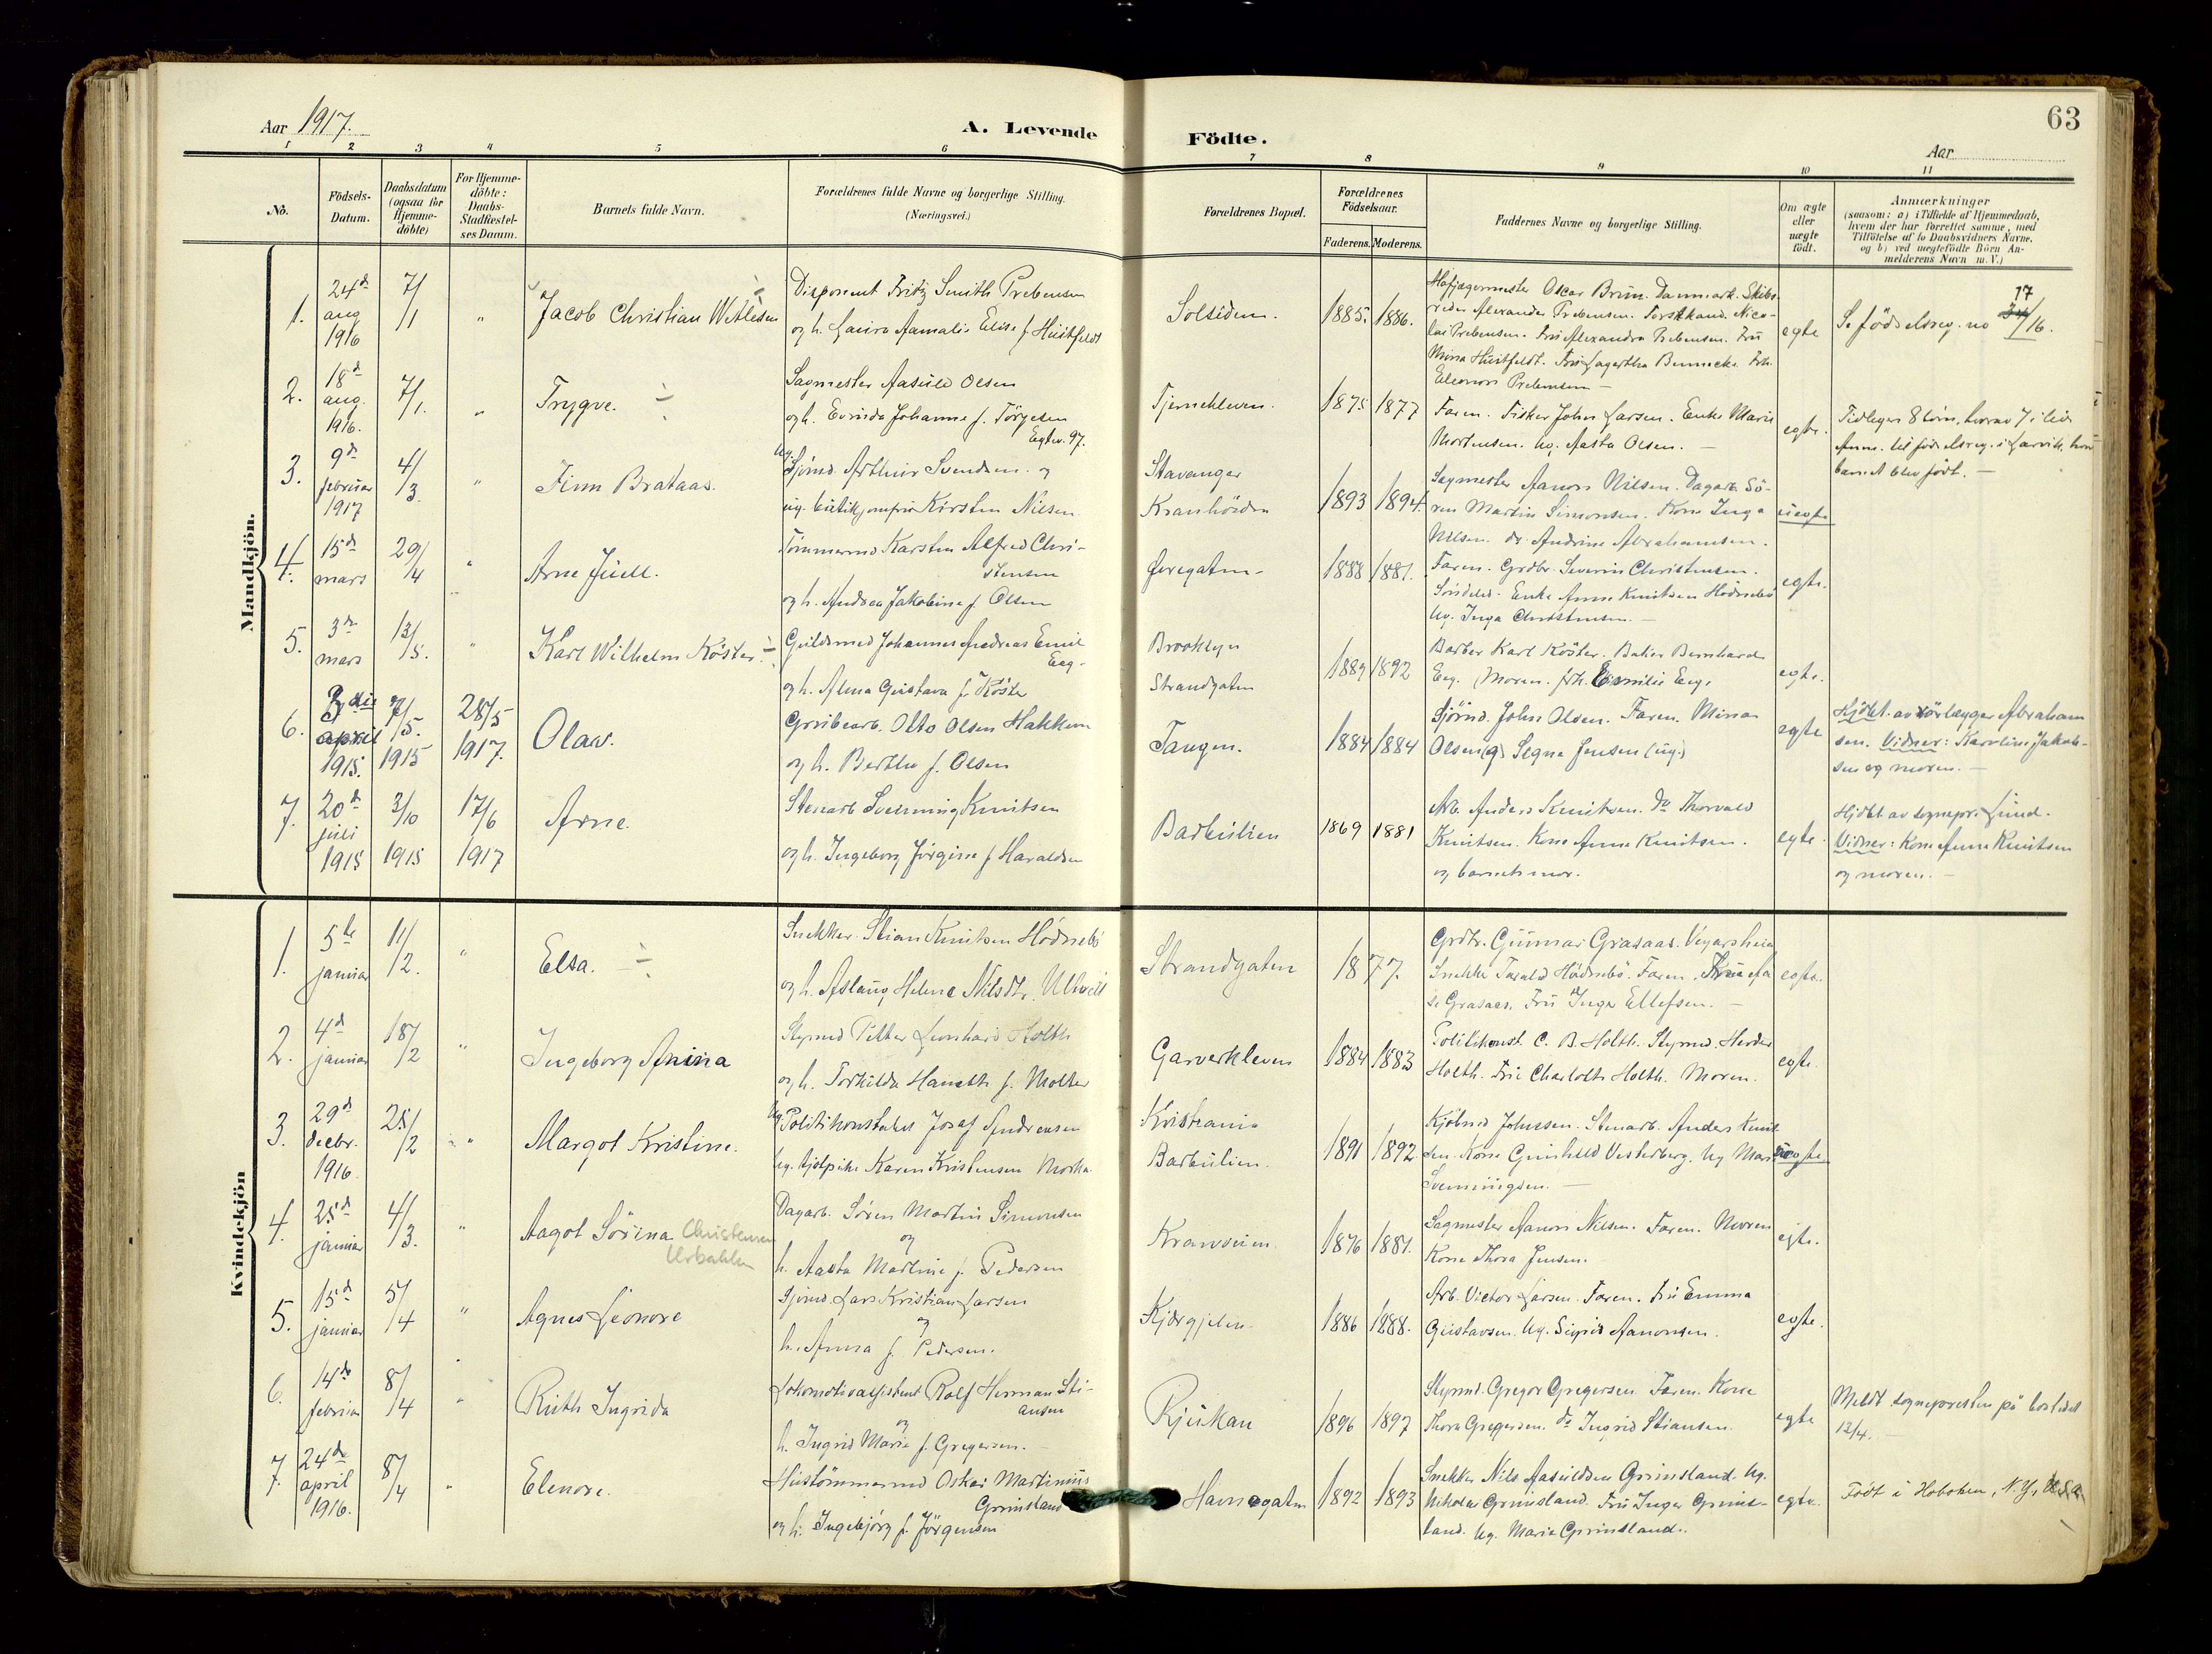 Aar 1917.
A. Levende Födte.
63
Aar
1 2 3 4 5 6 7 8 9 10 11
No.
Födsels-Datum.
Daabsdatum (ogsaa for Hjemme-döbte)
For Hjemme-döbte: Daabs-Stadfæstel-ses Datum.
Barnets fulde Navn.
Forældrenes fulde Navne og borgerlige Stilling.
(Næringsvei.)
Forældrenes Bopæl.
Forældrenes Födselsaar.
Faderens. Moderens.
Faddernes Navne og borgerlige Stilling.
Om ægte eller uægte födt.
Anmærkninger
(saasom: a) i Tilfælde af Hjemmedaab,
hvem der har forrettet samme, med
Tilföielse af to Daabsvidners Navne,
og b) ved uægtefödte Börn An-
melderens Navn m. V.)
Mandkjön.
1.
24d aug 1916
7/1
"
Jacob Christian
Disponent Fritz Smith Prebensen
og h. Laura Aamalie Elise f Huitfeldt
Solsiden.
1885. 1886.
Hofjægermester Oscar Bruun. Danmark. Skibs-
reder Alexander Prebensen. Forstkand. Nico-
lai Prebensen. Fru Alexandra Prebensen. Fru
Mina Huitfeldt. Fru Lagertha Bennecke. Frk.
Eleonore Prebensen —
egte
Se födselsreg. no 17/16.
2.
18d aug. 1916.
7/1.
"
Trygve. ÷
Sagmester Aasuld Olsen
og h. Evinda Johanne f. Törgesen
Egtev. 97.
Tjernekleven.
1875 1877
Faren. Fisker John Larsen. Enke Marie
Mortensen. Ug. Aasta Olsen. —
egte.
Tidligere 8 börn, hvorav 7 i live
Anm. til födselsreg. i Larvik, hvor
barnet blev födt. —
3.
9d februar 1917
4/3.
"
Finn Brataas.
Ug. Sjömd. Arthur Svendsen. og
ug. butikjomfru Kirsten Nilsen
Stavanger
1893 1894.
Sagmester Aanon Nilsen. Dagarb. Sö-
ren Martin Simonsen. Kone Inga
Nilsen. do Andrine Abrahamsen.
uegte
4.
15d mars
29/4
"
Arne Juell.
Tömmermd Karsten Alfred Chri-
stensen
og h. Andrea Jakobine f. Olsen
Øvregaten-
1888 1881.
Faren. Grdbr. Severin Christensen.
Söndeled. Enke Anne Knutsen Hödnebö
Ug. Inga Christensen. —
egte.
5.
3de mars
13/5.
"
Karl Wilhelm Köster. ÷
Guldsmed Johannes Andreas Emil
Eeg-
og h. Alma Gustava f. Köster
Brooklyn
Strandgaten
1889 1892
Barber Karl Köster. Baker Bernhard
Eeg. Moren. frk. Emilie Eeg.
egte.
6.
april 1915.
7/5. 1915
28/5 1917.
Olav.
Grubearb. Otto Olsen Hakken
og h. Berthe f. Olsen
Tangen.
1884 1884
Sjömd. John Olsen. Faren. Mina
Olsen (g) Segna Jensen (ug.)
egte
Hjdöbt. av rörlægger Abraham
sen. Vidner: Karoline Jakob-
sen og moren. —
7.
20d juli 1915
3/10 1915
17/6 1917
Arne.
Stenarb Svenning Knutsen
og h. Ingeborg Jörgine f Haraldsen
Barbulien
1869 1881
Arb. Anders Knutsen. do Thorvald
Knutsen. Kone Anne Knutsen.
og barnets mor.
egte.
Hjdöbt av sognepr. Lund.
Vidner: Kone Anne Knutsen
og moren. —
Kvindekjön
1.
5te januar
11/2.
"
Elsa. ÷
Snekker. Stian Knutsen Hödnebö
og h. Aslaug Helene Nilsdtr.
Strandgaten
1877.
Grdbr. Gunnar Grasaas. Vegarsheia
Snekker Tarald Hödnebö. Faren. Fru Aa
se Grasaas. Fru Inga Ellefsen. —
egte.
2.
4d januar
18/2
"
Ingeborg Anina
Styrmd Petter Leonhard Holth
og h. Torhilda Hanette f. Molter
Garverkleven
1884 1883
Politikonst. C. B. Holth. Styrmd. Herder
Holth. Fru Charlotte Holth. Moren.
egte.
3.
29d decbr. 1916
25/2
"
Margot Kristine.
Ug. Politikonstabel Josef Andreasen
Ug. tjpike Karen Kristensen
Kristiania
Barbulien.
1891 1892.
Kjöbmd Johnssen. Stenarb. Anders Knut
sen. Kone Gunhild Vesterberg. Ug Marie
Svenningsen. —
uegte
4.
25d januar
4/3.
"
Aagot Sörina Christensen
Dagarb. Sören Martin Simonsen
og
h. Aasta Mathine f. Pedersen
1876 1881.
Sagmester Aanon Nilsen. Faren. Moren
Kone Thora Jensen.
egte.
5.
15d januar
5/4
"
Agnes Leonore
Sjömd. Lars Kristian Larsen
og
h. Anna f. Pedersen.
1886 1888.
Arb. Victor Larsen. Faren. Fru Emma
Gustavsen. Ug. Sigrid Aanonsen.
egte.
6.
14de februar
8/4
"
Ruth Ingrida
Lokomotivassistent Rolf Herman Sti-
ansen
og
h. Ingrid Marie f. Gregersen.
Rjukan
1896 1897
Styrmd. Gregor Gregersen. Faren. Kone
Thora Gregersen. do Ingrid Stiansen.
egte
Meldt sognepresten på bostedet
12/4.
7.
24de april 1916.
8/4
"
Elenore.
Hustömmermd Oskar Martinius
Grimsland
og h. Ingebjörg f. Jörgensen
Havnegaten
1892 1893
Snekker Nils Aasuldsen Grimsland. Ug.
Nikolai Grimsland. Fru Inger Grims-
land. Ug. Marie Grimsland.
egte.
Födt i Hoboken, N.Y.